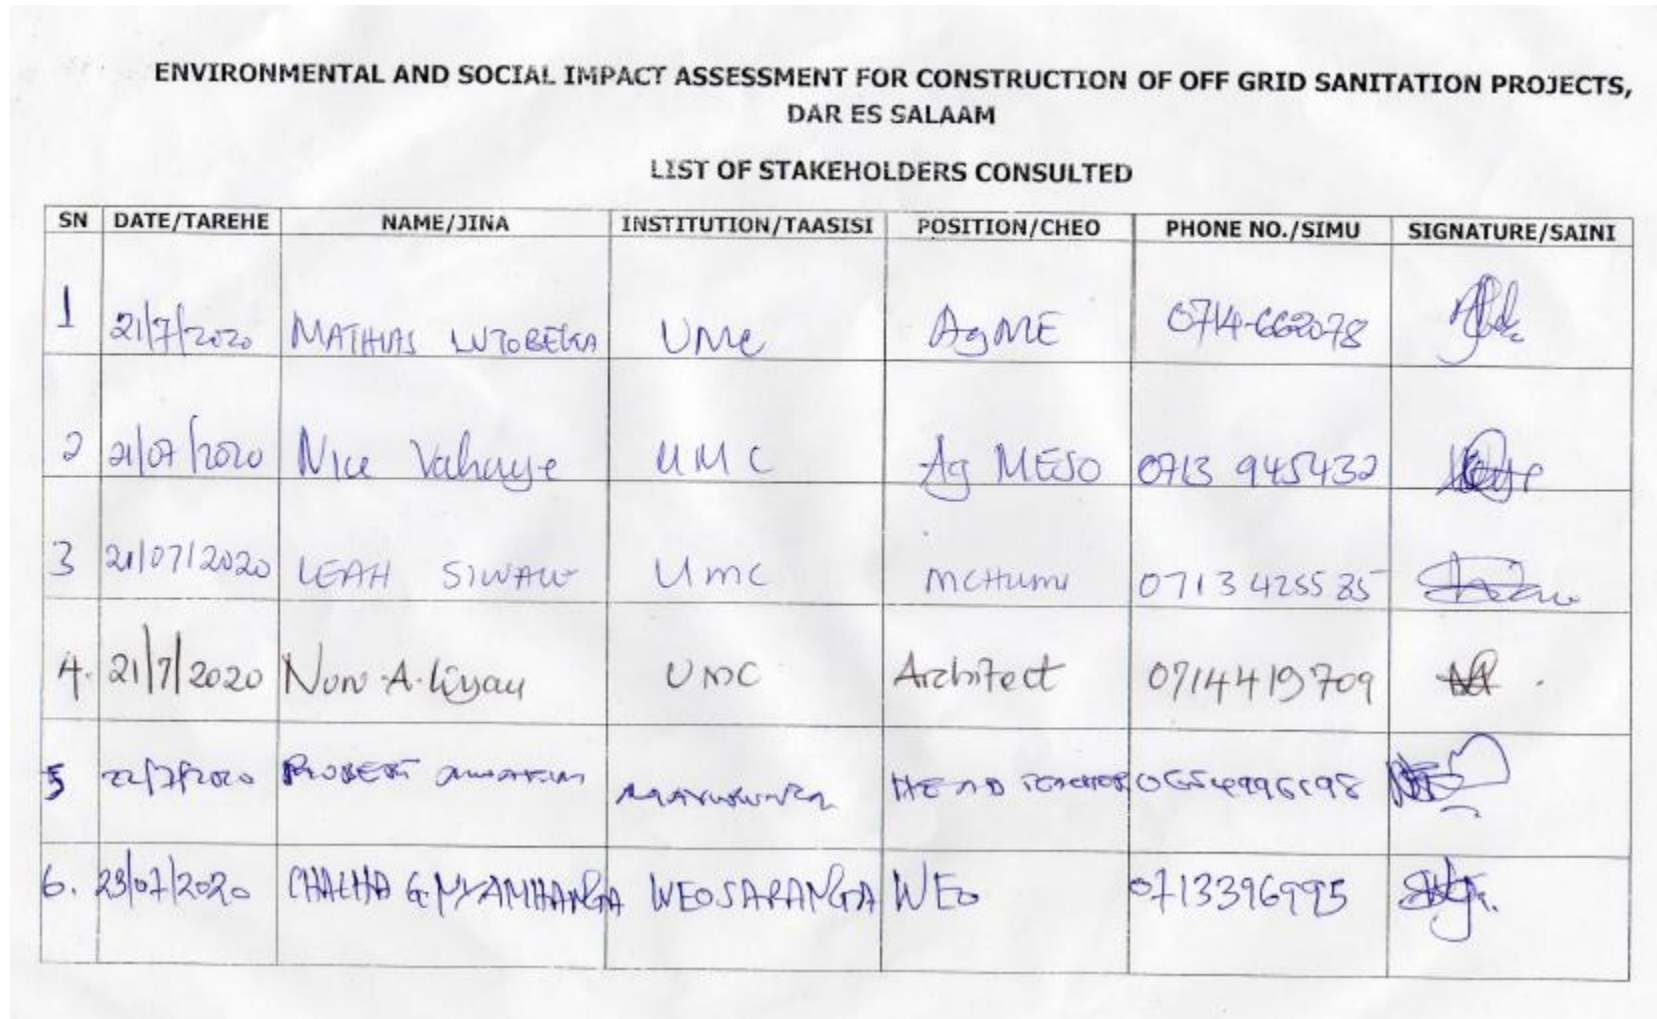 ENVIRONMENTAL AND SOCIAL IMPACT ASSESSMENT FOR CONSTRUCTION OF OFF GRID SANITATION PROJECTS,
DAR ES SALAAM
LIST OF STAKEHOLDERS CONSULTED
SN DATE/TAREHE NAME/JINA INSTITUTION/TAASISI POSITION/CHEO PHONE NO./SIMU SIGNATURE/SAINI
1 21/7/2020 MATHIAS LUTOBEKA UMC AgME 0714-662078
2 21/07/2020 Nice Vahaye UMC Ag MESO 0713 945432
3 21/07/2020 LEAH UMC MCHUMI 0713 425585
4. 21/7/2020 UMC Architect 0714419709
5 22/7/2020 ROBERT HEAD TEACHER
6. 23/07/2020 CHACHA G. NYAMHANGA WEO SARANGA WEO 0713396995